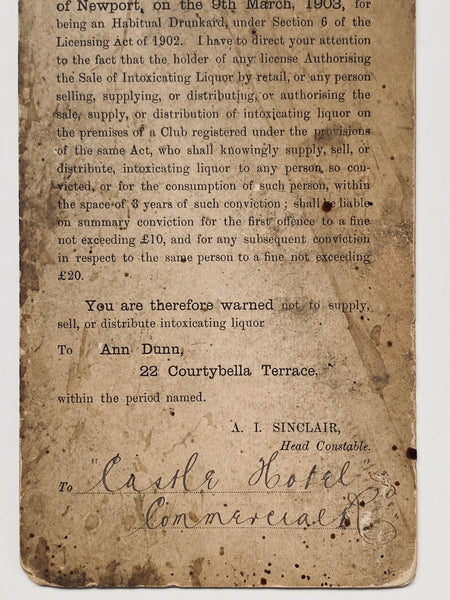 of Newport, on the 9th March, 1903, for
being an Habitual Drunkard, under Section 6 of the
Licensing Act of 1902. I have to direct your attention
to the fact that the holder of any license Authorising
the Sale of Intoxicating Liquor by retail, or any person
selling, supplying, or distributing, or authorising the
sale, supply, or distribution of intoxicating liquor on
the premises of a Club registered under the provisions
of the same Act, who shall knowingly supply, sell, or
distribute, intoxicating liquor to any person so con-
victed, or for the consumption of such person, within
the space of 3 years of such conviction ; shall be liable
on summary conviction for the first offence to a fine
not exceeding £10, and for any subsequent conviction
in respect to the same person to a fine not exceeding
£20.
You are therefore warned not to supply,
sell, or distribute intoxicating liquor
To Ann Dunn,
22 Courtybella Terrace,
within the period named.
A. I. SINCLAIR,
Head Constable.
To "Castle Hotel"
Commercial